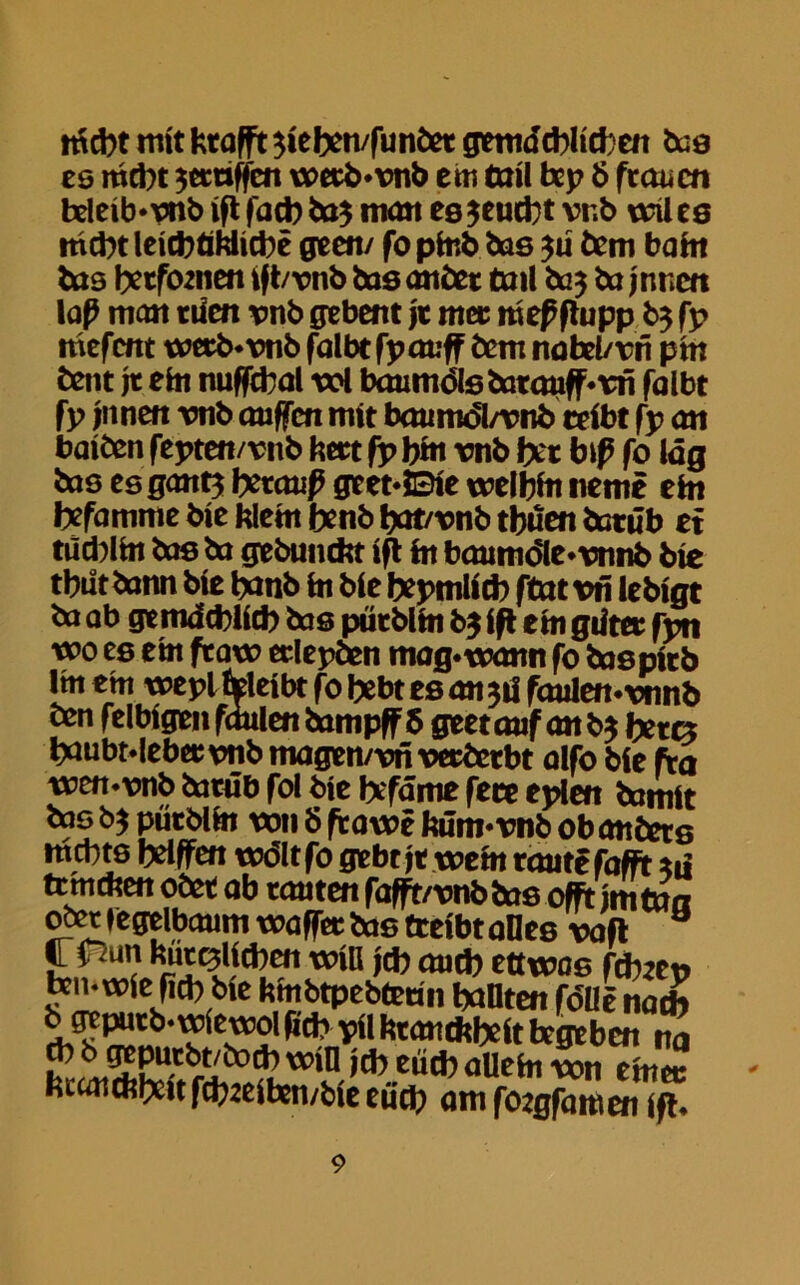 nicht mit krafft ziehen/sunder gemåchlichen das
es nicht zerriſſen werd·vnd ein tail bey d̕ frauen
beleib·vnd iſt ſach daz man es zeucht vnd wil es
nicht leichtiklichē geen/ ſo pind das zů dem bain
das herfoꝛnen iſt/vnd das ander tail daz da jnnen
laß man růen vnd gebent jr mer nieß ſtupp dz ſy
nieſent werd·vnd ſalbt ſy auff dem nabel/vn̄ pin
dent jr ein nuſſchal vol baumöls darauff·vn̄ ſalbt
ſy jnnen vnd auſſen mit baumöl/vnd reibt ſy an
baiden ſeyten/vnd kert ſy hin vnd her biß ſo lāg
das es gantz herauß geet·Die welhin nemē ein
hefamme die klein hend hat/vnd thůen darūb ei
tüchlin das da gebunckt iſt in baumöle·vnnd die
thůt dann die hand in die heymlich ſtat vn̄ ledigt
da ab gemåchlich das pürdlin dz iſt ein gůter ſyn
wo es ein fraw erleyden mag·wann ſo das pird
lin ein weyl beleibt ſo hebt es an zů faulen·vnnd
den ſelbigen faulen dampff d̕ geet auf an dz hertz
haubt·leber vnd magen/vn̄ verderbt alſo die fra
wen·vnd darūb ſol die hefāme ſere eylen damit
das dz pürdlin von d̕ frawē kūm·vnd ob anders
nichts helffen wölt ſo gebt jr wein rautē ſafft zů
trincken oder ab rauten ſafft/vnd das offt jm tag
oder ſegelbaum waſſer das treibt alles vaſt
¶ Nun kürtzlichen will jch auch ettwas ſchꝛey
ben·wie ſich die kindtpedterin hallten ſöllē nach
d̕ gepurd·wiewol ſich vil kranckheit begeben na
ch d̕ gepurdt/doch will jch eüch allein von einer
kranckheit ſchꝛeiben/die eüch am ſoꝛgſamen iſt.
9